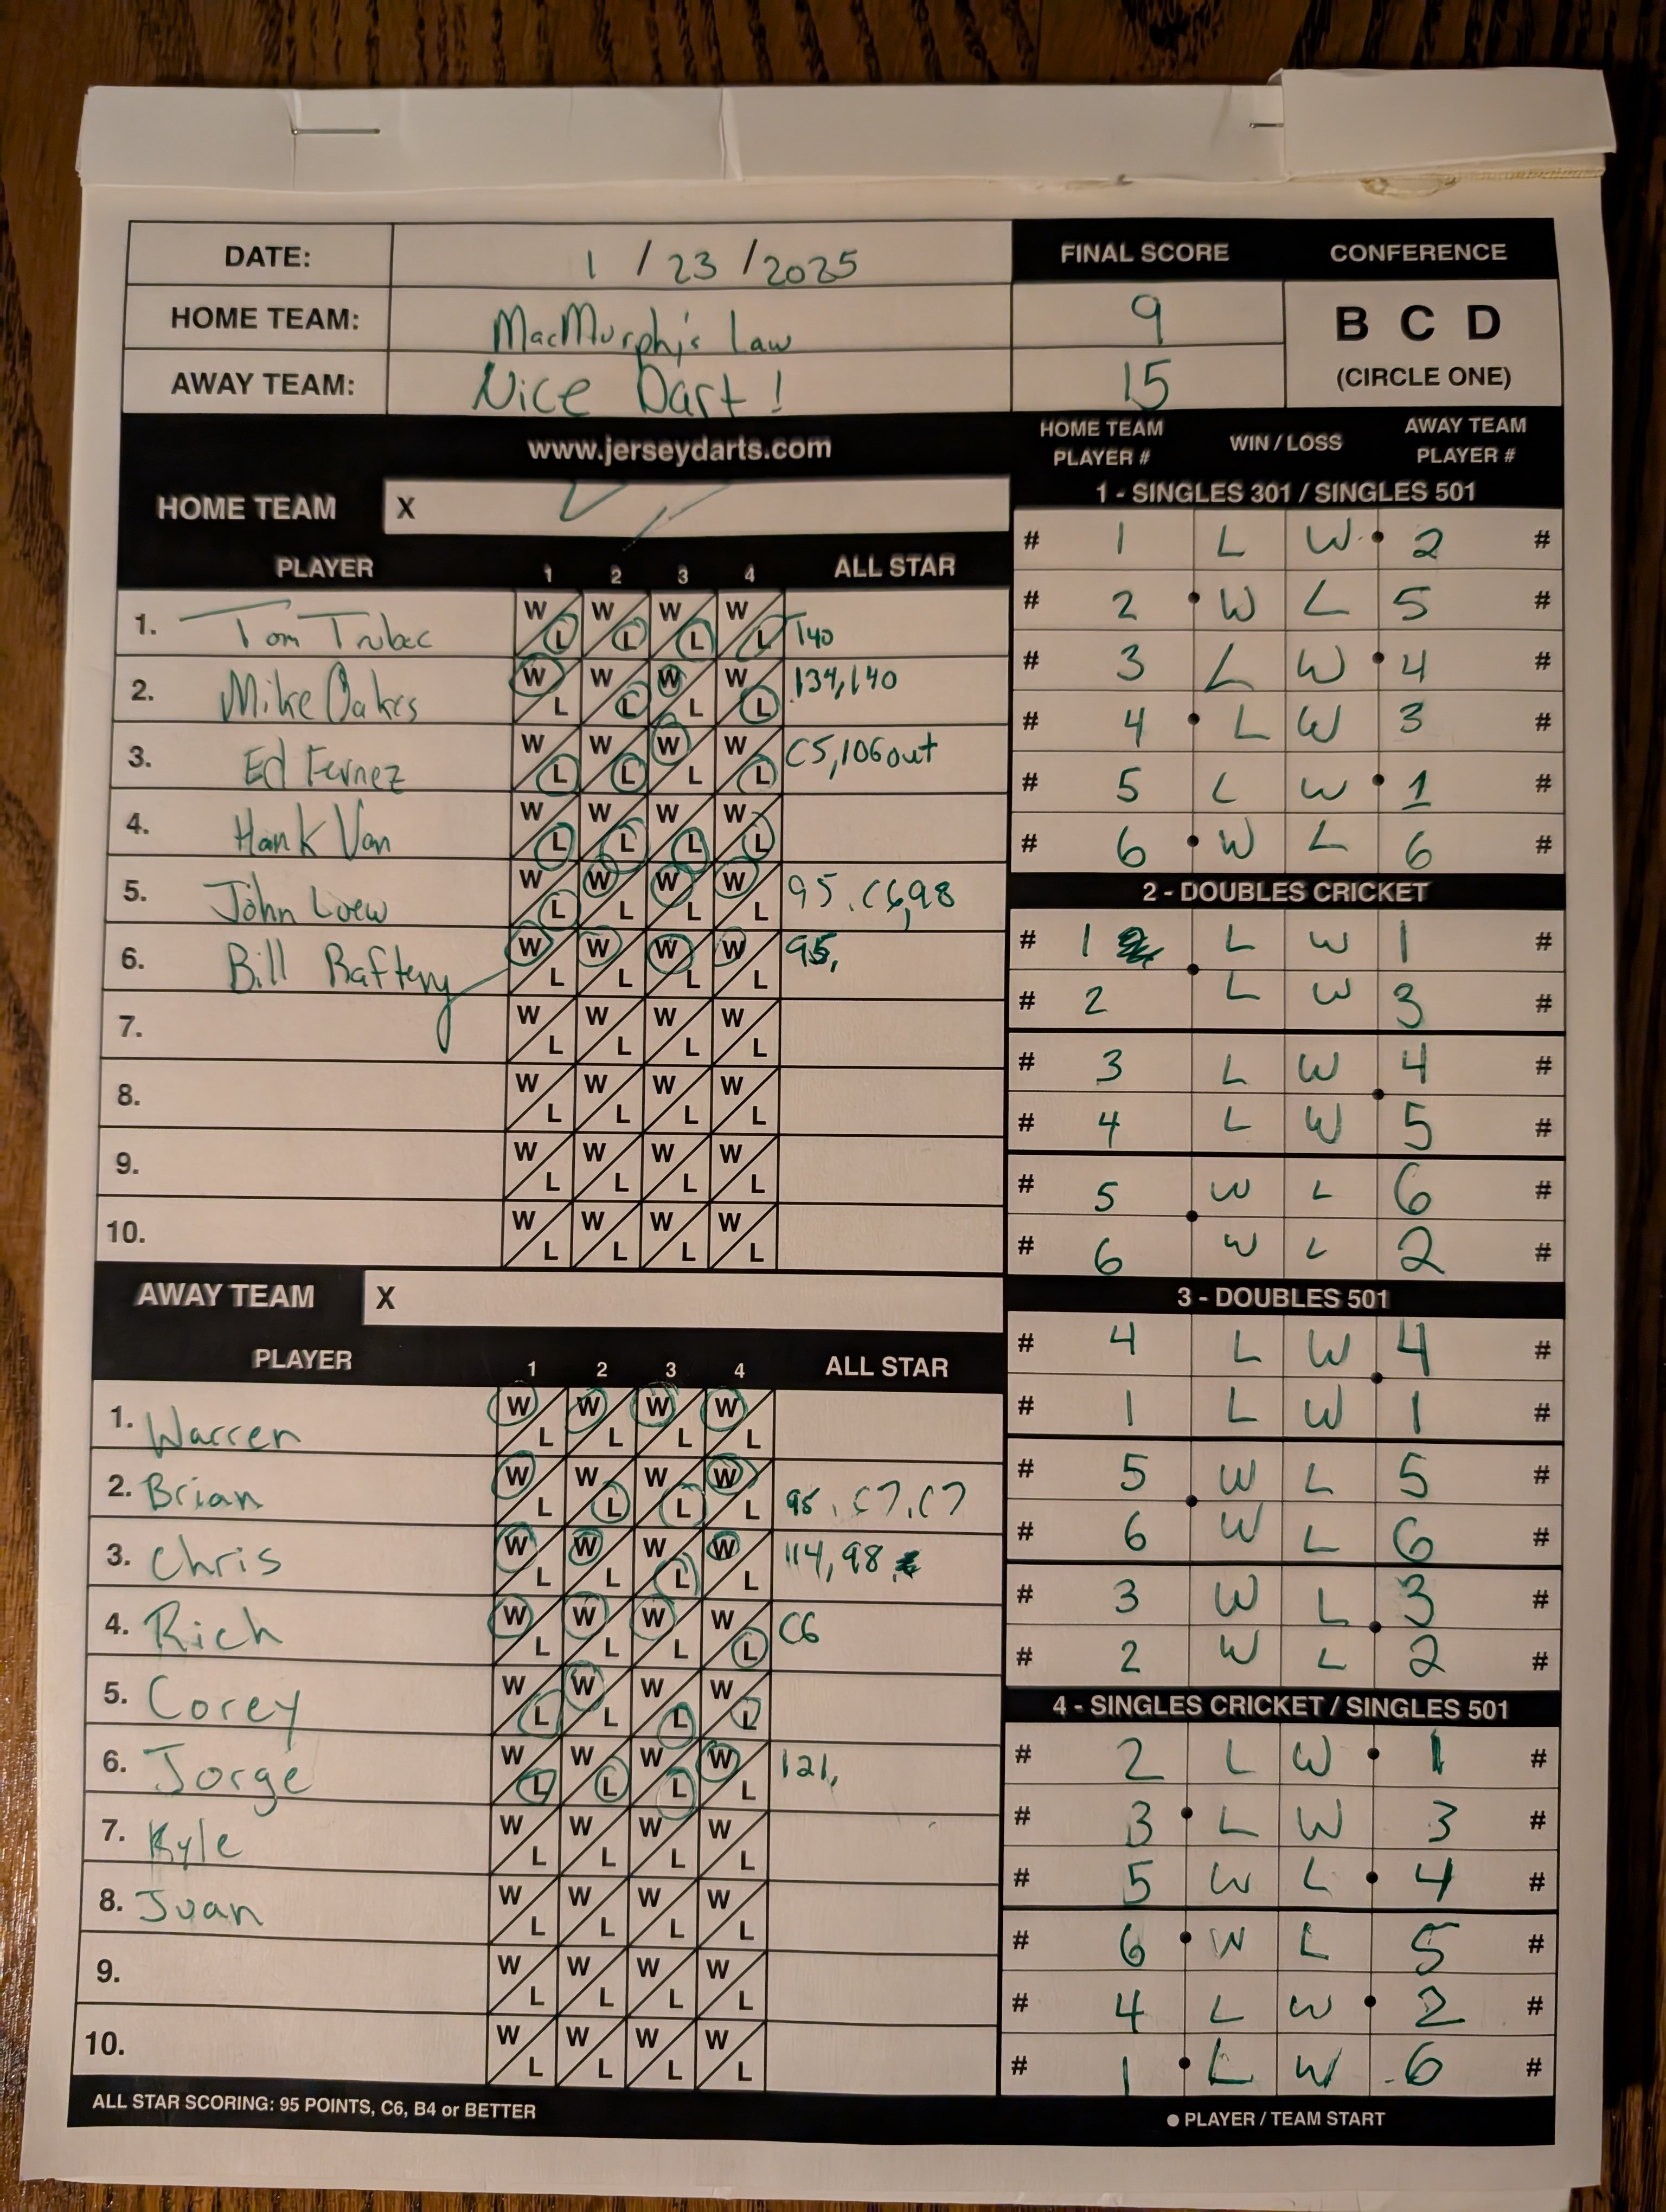 DATE: 1 / 23 / 2025 FINAL SCORE CONFERENCE
HOME TEAM: MacMurphy's Law 9 B C D
AWAY TEAM: Nice Dart! 15 (CIRCLE ONE)
www.jerseydarts.com
HOME TEAM X
PLAYER 1 2 3 4 ALL STAR
1. Tom Trubac W L W L W L W L 140
2. Mike Oakes W L W L W L W L 134, 140
3. Ed Fernez W L W L W L W L C5, 106 out
4. Hank Van W L W L W L W L
5. John Loew W L W L W L W L 95, C6, 98
6. Bill Raftery W L W L W L W L 95,
7. W L W L W L W L
8. W L W L W L W L
9. W L W L W L W L
10. W L W L W L W L
AWAY TEAM X
PLAYER 1 2 3 4 ALL STAR
1. Warren W L W L W L W L
2. Brian W L W L W L W L 95, C7, C7
3. Chris W L W L W L W L 114, 98,
4. Rich W L W L W L W L C6
5. Corey W L W L W L W L
6. Jorge W L W L W L W L 121,
7. Kyle W L W L W L W L
8. Juan W L W L W L W L
9. W L W L W L W L
10. W L W L W L W L
ALL STAR SCORING: 95 POINTS, C6, B4 or BETTER
HOME TEAM PLAYER # WIN / LOSS AWAY TEAM PLAYER #
1 - SINGLES 301 / SINGLES 501
# 1 L W 2 #
# 2 W L 5 #
# 3 L W 4 #
# 4 L W 3 #
# 5 L W 1 #
# 6 W L 6 #
2 - DOUBLES CRICKET
# 1 L W 1 #
# 2 L W 3 #
# 3 L W 4 #
# 4 L W 5 #
# 5 W L 6 #
# 6 W L 2 #
3 - DOUBLES 501
# 4 L W 4 #
# 1 L W 1 #
# 5 W L 5 #
# 6 W L 6 #
# 3 W L 3 #
# 2 W L 2 #
4 - SINGLES CRICKET / SINGLES 501
# 2 L W 1 #
# 3 L W 3 #
# 5 W L 4 #
# 6 W L 5 #
# 4 L W 2 #
# 1 L W 6 #
PLAYER / TEAM START